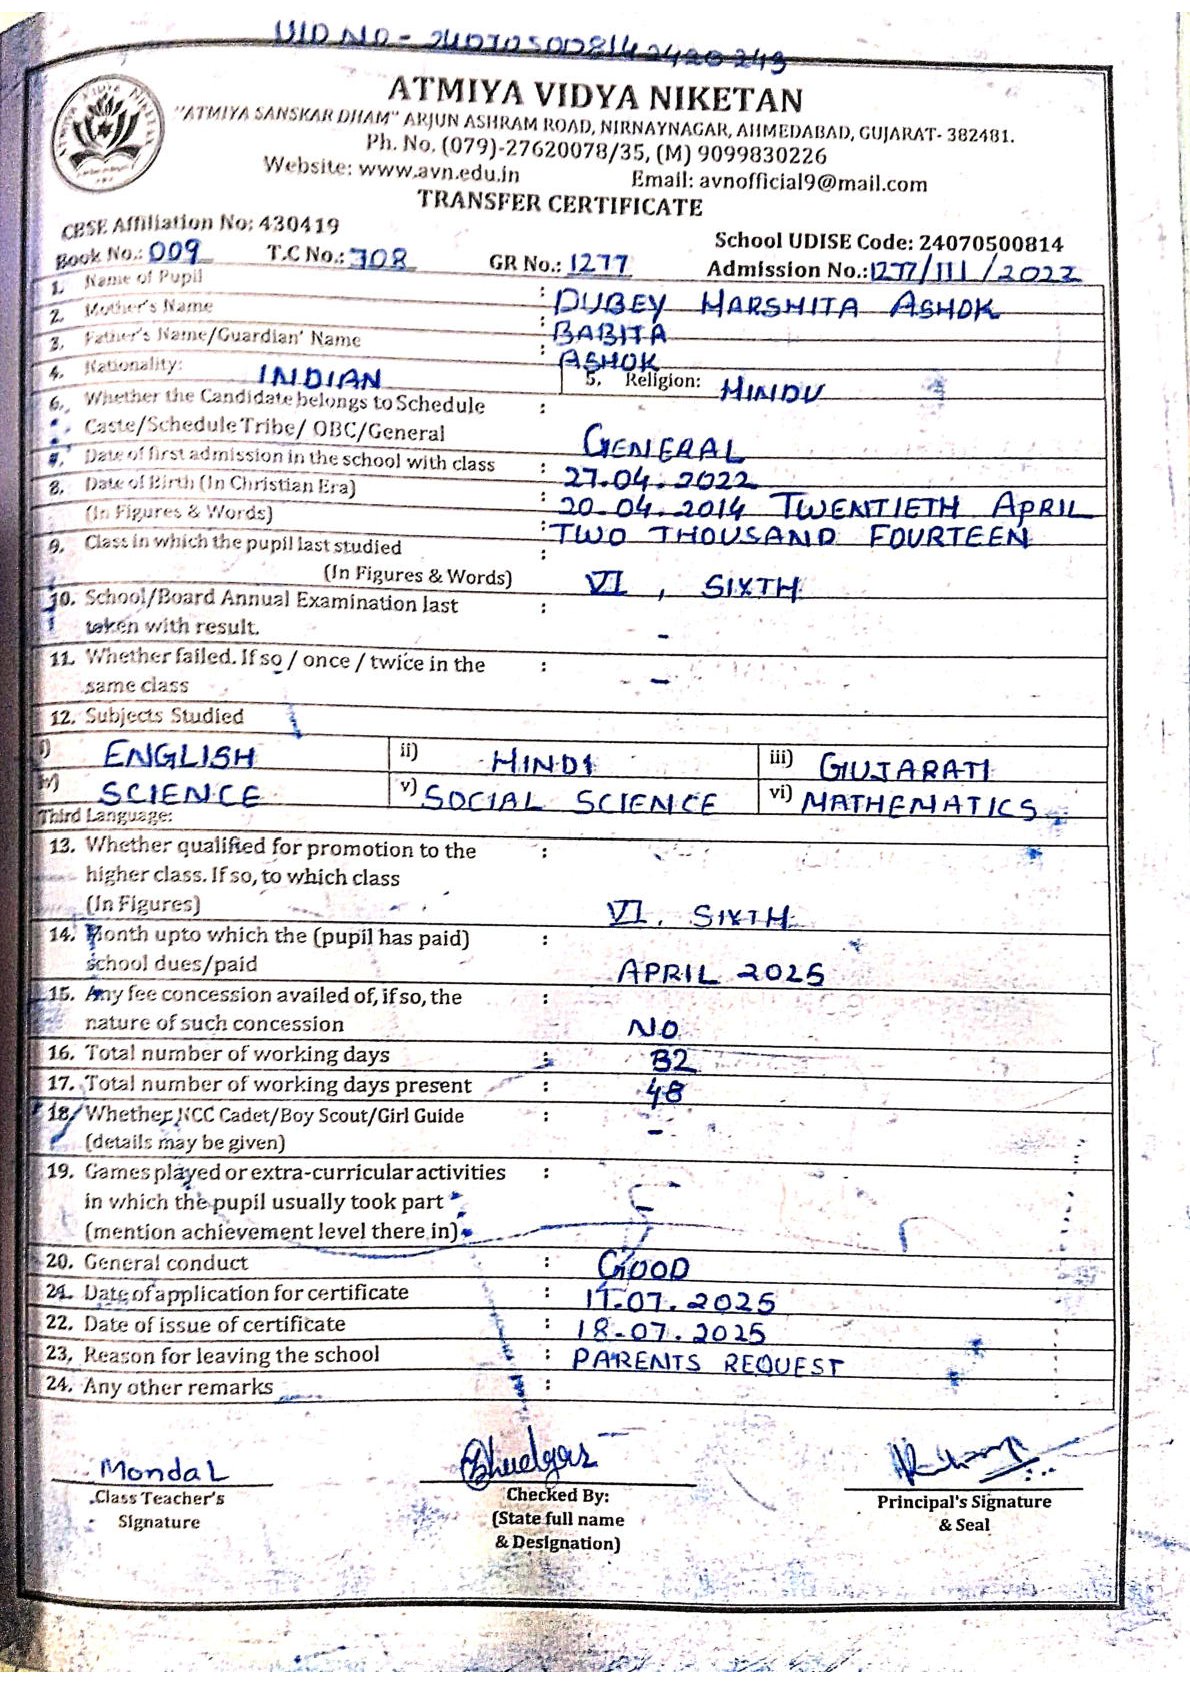 UID NO - 240705008142420243
ATMIYA VIDYA NIKETAN
"ATMIYA SANSKAR DHAM" ARJUN ASHRAM ROAD, NIRNAYNAGAR, AHMEDABAD, GUJARAT- 382481.
Ph. No. (079)-27620078/35, (M) 9099830226
Website: www.avn.edu.in Email: avnofficial9@mail.com
TRANSFER CERTIFICATE
CBSE Affiliation No: 430419 School UDISE Code: 24070500814
Book No.: 009 T.C No.: 708 GR No.: 1277 Admission No.: 1277/III/2022
1. Name of Pupil : DUBEY HARSHITA ASHOK
2. Mother's Name : BABITA
3. Father's Name/Guardian' Name : ASHOK
4. Nationality: INDIAN 5. Religion: HINDU
6. Whether the Candidate belongs to Schedule :
Caste/Schedule Tribe/ OBC/General GENERAL
7. Date of first admission in the school with class : 27.04.2022
8. Date of Birth (In Christian Era) : 20.04.2014 TWENTIETH APRIL
(In Figures & Words) : TWO THOUSAND FOURTEEN
9. Class in which the pupil last studied :
(In Figures & Words) VI , SIXTH
10. School/Board Annual Examination last :
taken with result. -
11. Whether failed. If so / once / twice in the :
same class -
12. Subjects Studied
i) ENGLISH ii) HINDI iii) GUJARATI
iv) SCIENCE v) SOCIAL SCIENCE vi) MATHEMATICS
Third Language:
13. Whether qualified for promotion to the :
higher class. If so, to which class
(In Figures) VI, SIXTH
14. Month upto which the (pupil has paid) :
school dues/paid APRIL 2025
15. Any fee concession availed of, if so, the :
nature of such concession NO
16. Total number of working days :
17. Total number of working days present : 48
18. Whether NCC Cadet/Boy Scout/Girl Guide :
(details may be given) -
19. Games played or extra-curricular activities :
in which the pupil usually took part -
(mention achievement level there in)
20. General conduct : GOOD
21. Date of application for certificate : 17.07.2025
22. Date of issue of certificate : 18-07.2025
23. Reason for leaving the school : PARENTS REQUEST
24. Any other remarks :
Mondal
Class Teacher's
Signature
Checked By:
(State full name
& Designation)
Principal's Signature
& Seal